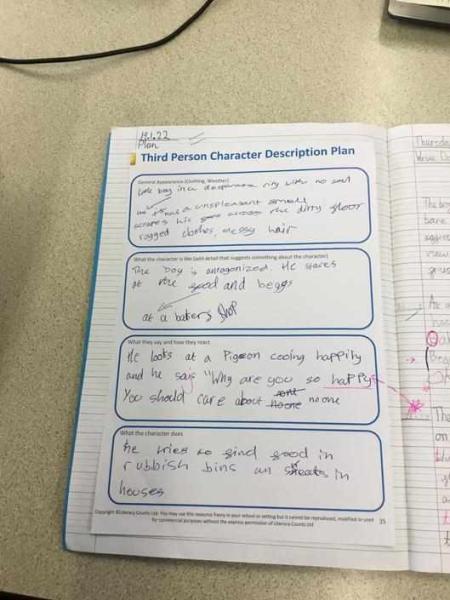 13.1.22
Plan
Third Person Character Description Plan
General Appearance (Clothing, Weather)
little boy in a desperate city with no soul
he has a unspleasant smell
scrapes his across the dirty floor
ragged clothes, messy hair
What the character is like (add detail that suggests something about the character)
The boy is antagonized. He stares
at the food and beggs
at a bakers shop
What they say and how they react
He looks at a Pigeon cooing happily
and he says "Why are you so happy
You should care about no one
What the character does
he tries to find food in
rubbish bins an in
houses
Copyright ©Literacy Counts Ltd. You may use this resource freely in your school or setting but it cannot be reproduced, modified or used
for commercial purposes without the express permission of Literacy Counts Ltd 35
Thursda